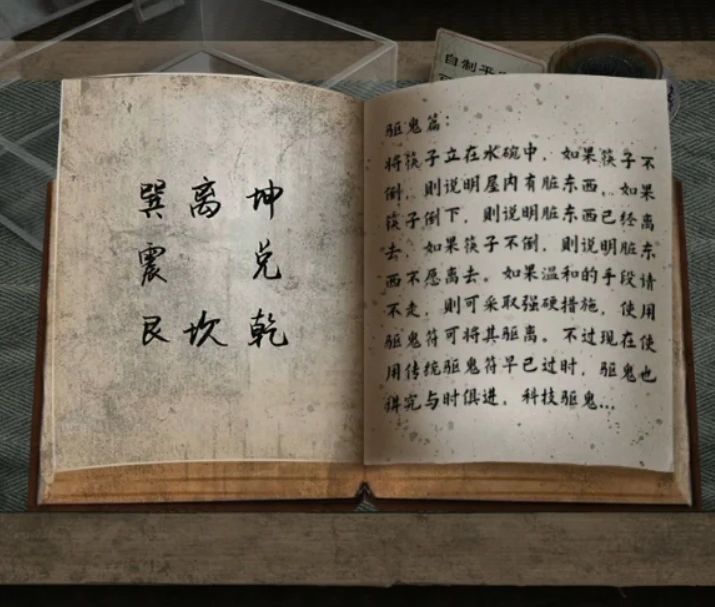 巽 离 坤
震 兑
艮 坎 乾
自制
驱鬼篇：
将筷子立在水碗中，如果筷子不
倒，则说明屋内有脏东西，如果
筷子倒下，则说明脏东西已经离
去，如果筷子不倒，则说明脏东
西不愿离去。如果温和的手段请
不走，则可采取强硬措施，使用
驱鬼符可将其驱离。不过现在使
用传统驱鬼符早已过时，驱鬼也
得究与时俱进，科技驱鬼...